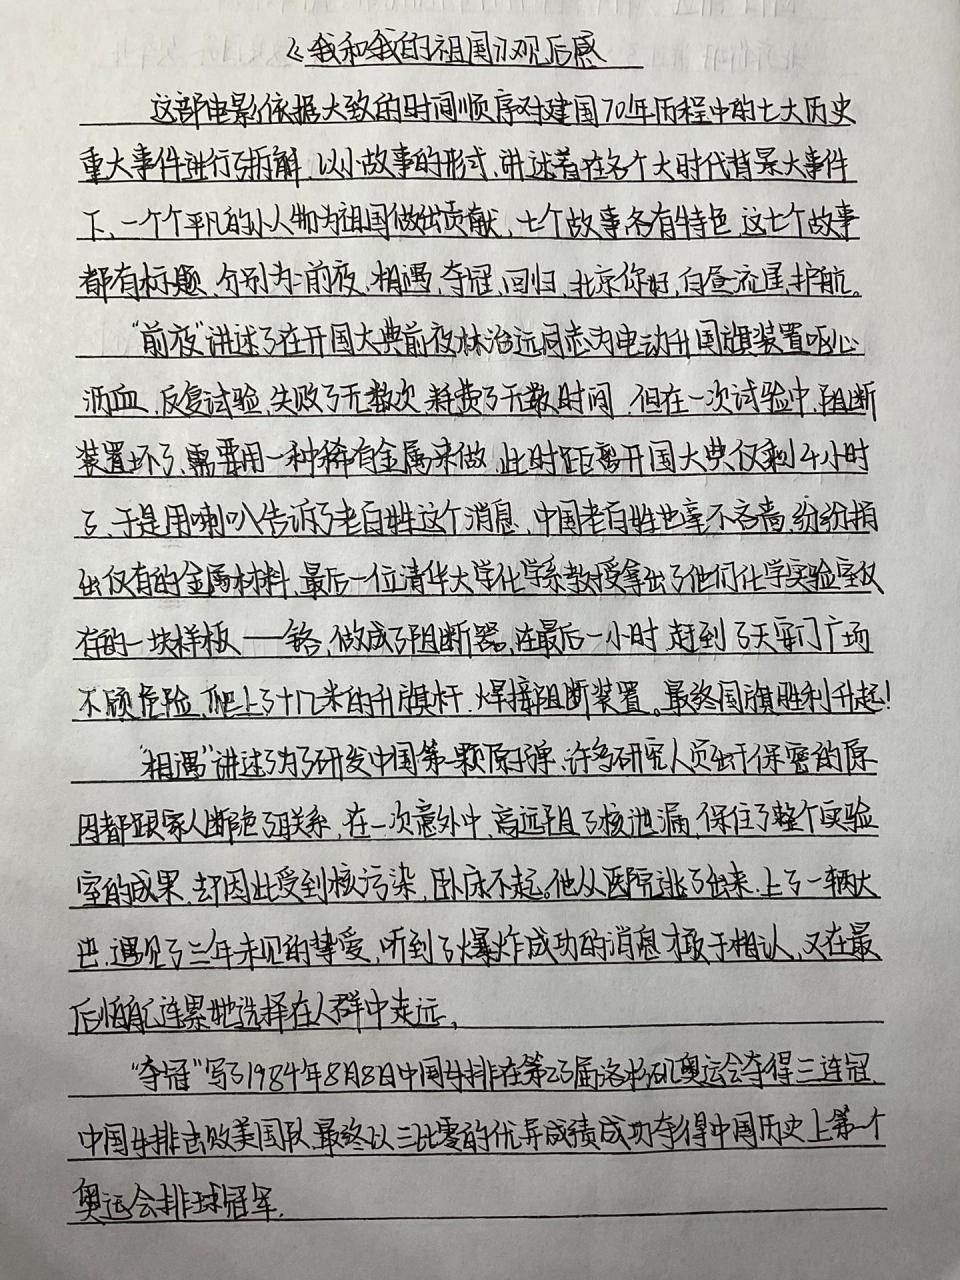 《我和我的祖国》观后感
这部电影依据大致的时间顺序对建国70年历程中的七大历史
重大事件进行了拆解,以小故事的形式,讲述着在各个大时代背景大事件
下,一个个平凡的小人物为祖国做出贡献,七个故事各有特色,这七个故事
都有标题,分别为:前夜,相遇,夺冠,回归,北京你好,白昼流星,护航。
"前夜"讲述了在开国大典前夜林治远同志为电动升国旗装置呕心
沥血,反复试验,失败了无数次,耗费了无数时间,但在一次试验中,阻断
装置坏了,需要用一种稀有金属来做,此时距离开国大典仅剩4小时
了,于是用喇叭告诉了老百姓这个消息,中国老百姓也毫不吝啬,纷纷捐
出仅有的金属材料,最后一位清华大学化学系教授拿出了他们化学实验室仅
存的一块样板——铬,做成了阻断器。在最后一小时,赶到了天安门广场
不顾危险,爬上了十几米的升旗杆,焊接阻断装置。最终国旗胜利升起!
"相遇"讲述了为了研发中国第一颗原子弹,许多研究人员出于保密的原
因都跟家人断绝了联系,在一次意外中,高远阻了核泄漏,保住了整个实验
室的成果,却因此受到核污染,卧床不起,他从医院逃了出来,上了一辆大
巴,遇见了三年未见的挚爱,听到了爆炸成功的消息才敢于相认,又在最
后怕牵连累她选择在人群中走远,
"夺冠"写了1984年8月8日中国女排在第23届洛杉矶奥运会夺得三连冠,
中国女排击败美国队,最终以三比零的优异成绩成功夺得中国历史上第一个
奥运会排球冠军.